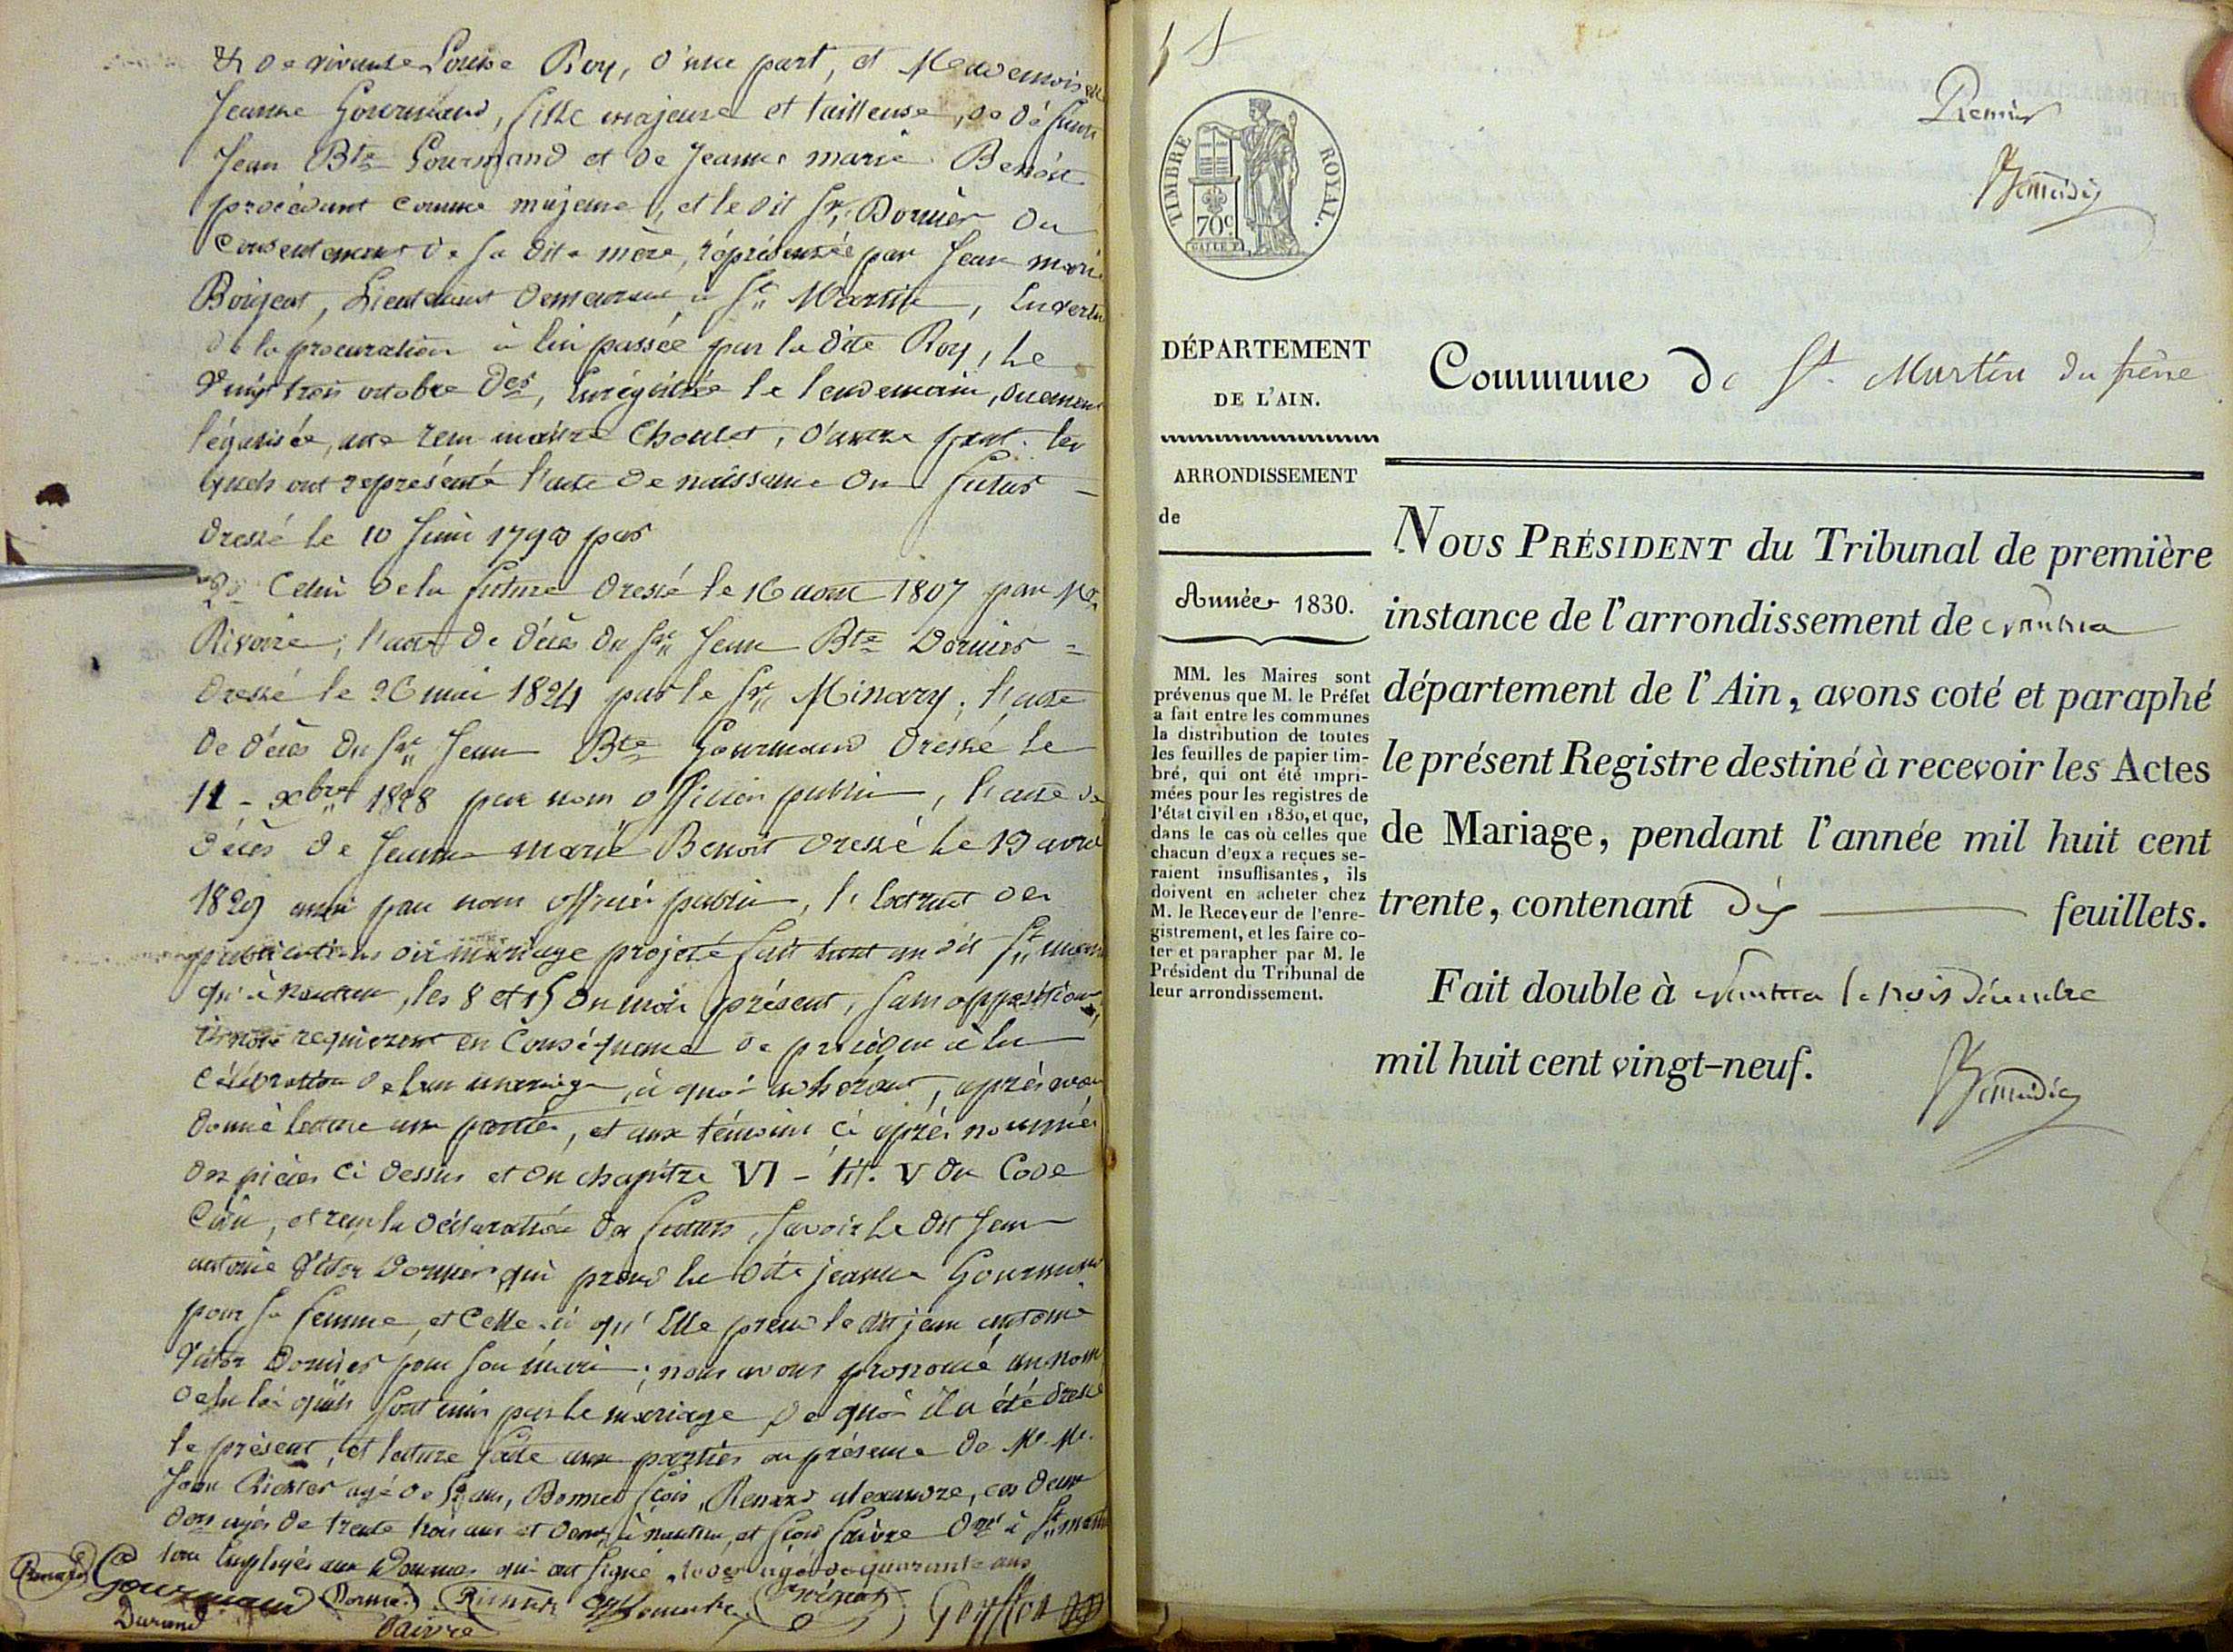 & de vivante Louise Roy, d'une part, et Mademoiselle
Jeanne Gourmand, fille majeure et tailleuse, de défunt
Jean Bte Gourmand et de Jeanne marie Benoit
procédant comme majeure, et le dit Sr. Dornier du
consentement de sa dite mère, réprésentée par Jean marie
Lieutenant demeurant à St Martin, En vertu
de la procuration à lui passée par la dite Roy, le
vingt trois octobre der, Enrégistrée le lendemain, duement
légalisée, par maître d'autre part. les
quels ont représenté l'acte de naissance du futur
dressé le 10 Juin 1790 par
2º Celui de la future dressé le 16 août 1807 par Mr
Rivoire; l'acte de décès du Sr Jean Bte Dornier
dressé le 26 mai 1824 par le Sr Minary; l'acte
de décès du Sr Jean Bte Gourmand dressé le
11 - xbre 1828 par nous officier public, l'acte de
décès de Jeanne marie Benoit dressé le 19 avril
1829 aussi par nous officier public, l'extrait des
publications du mariage projeté fait tant au dit St martin
qu'à Nantua, les 8 et 15 du mois présent, sans opposition,
requièrent en Conséquence de procéder à la
célébration de leur mariage, à quoi adhérant, après avoir
donné lecture aux parties, et aux témoins ci après nommés
des pièces ci dessus et du chapitre VI - tit. V du Code
Civil, et reçu la déclaration des futurs, savoir le dit Jean
antoine Victor Dornier qui prend la dite jeanne Gourmand
pour sa femme, et Celle-ci qu'Elle prend le dit jean antoine
Victor Dornier pour son mari; nous avons prononcé au nom
de la loi qu'ils sont unis par le mariage, de quoi il a été dressé
le présent, et lecture faite aux parties en présence de M. M.
Jean agé de ans, Bonnet fçois, Renard alexandre, ces deux
ders agés de trente trois ans et demt à nantua, et fçois faivre dmt à St martin
tous Employés aux Douanes qui ont signé, le der agé de quarante ans
Gourmand Dornier
Durand faivre
DÉPARTEMENT
DE L'AIN.
ARRONDISSEMENT
de
Année 1830.
MM. les Maires sont
prévenus que M. le Préfet
a fait entre les communes
la distribution de toutes
les feuilles de papier tim-
bré, qui ont été impri-
mées pour les registres de
l'état civil en 1830, et que,
dans le cas où celles que
chacun d'eux a reçues se-
raient insuffisantes, ils
doivent en acheter chez
M. le Receveur de l'enre-
gistrement, et les faire co-
ter et parapher par M. le
Président du Tribunal de
leur arrondissement.
TIMBRE ROYAL.
70c.
Premier
Commune de St. Martin du frêne
Nous Président du Tribunal de première
instance de l'arrondissement de Nantua
département de l'Ain, avons coté et paraphé
le présent Registre destiné à recevoir les Actes
de Mariage, pendant l'année mil huit cent
trente, contenant dix feuillets.
Fait double à Nantua le trois décembre
mil huit cent vingt-neuf.